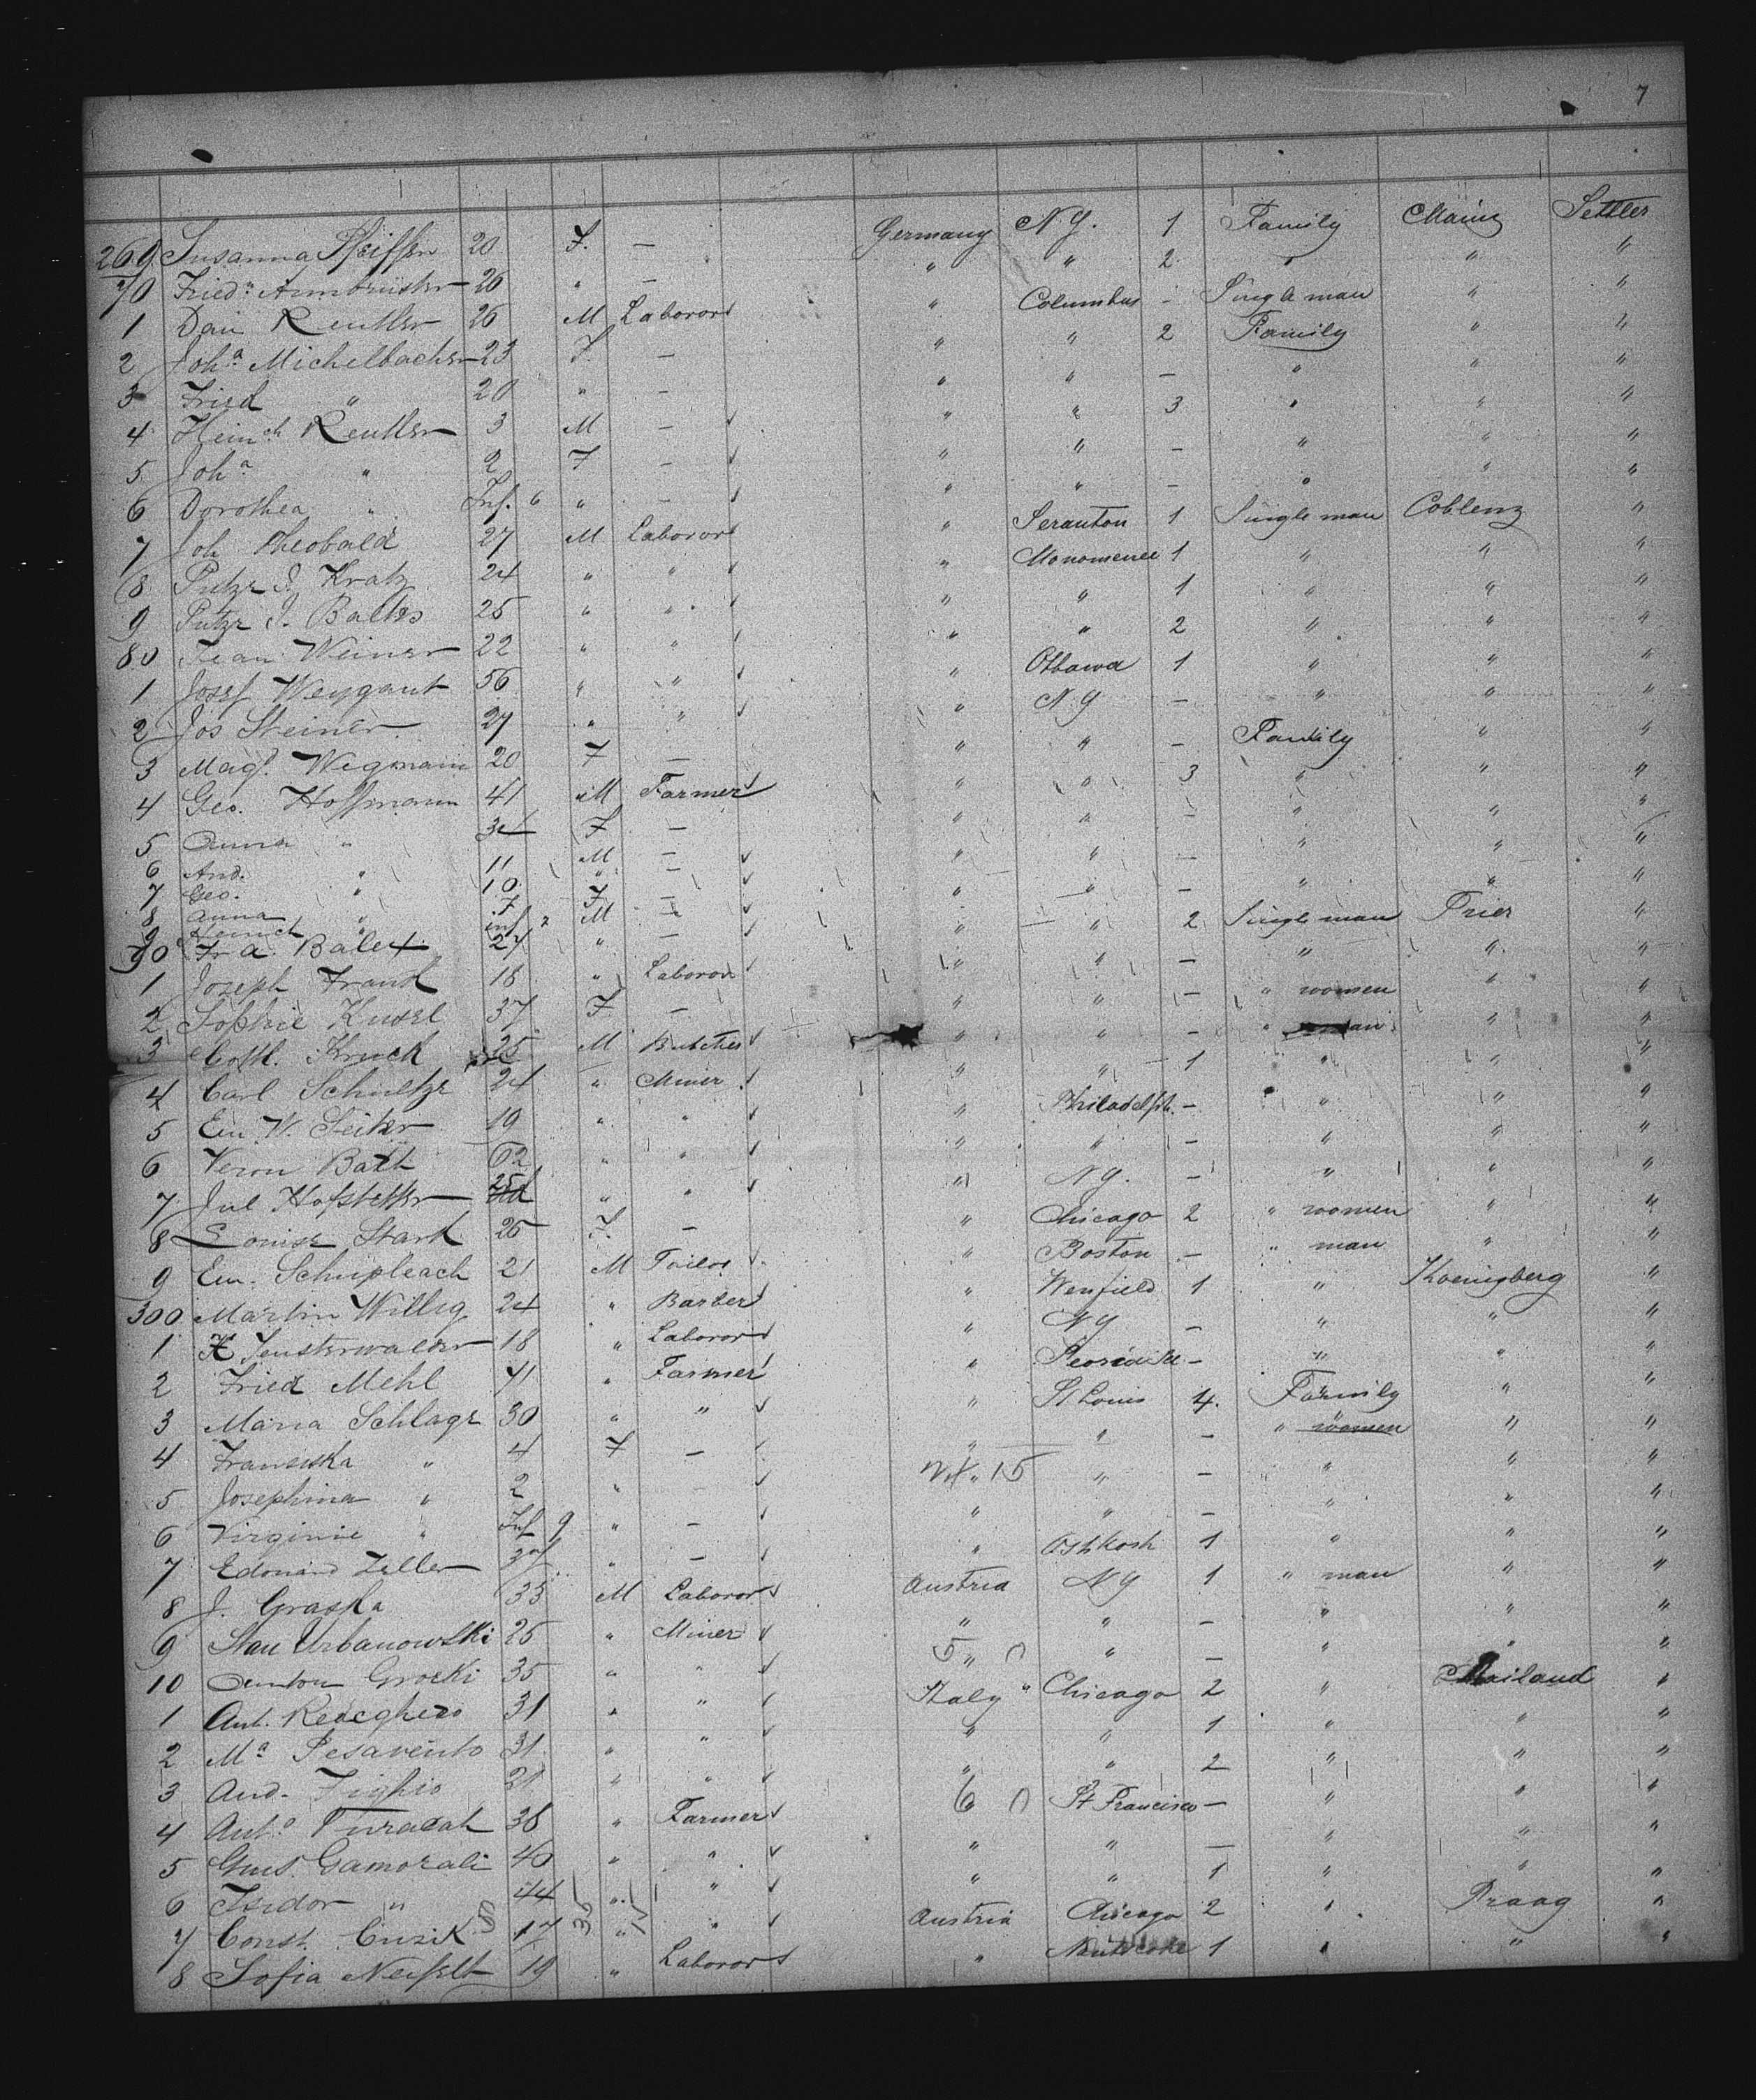 7
269 Susanna Pfeiffer 20 F. — Germany N.Y. 1 Family Mainz Settler
70 Fried.a Armbrüster 26 " — " " 2 " " "
1 Dan Reutler 26 M Laboror " Columbus - Single man " "
2 Joh.a Michelbacher 23 F. — " " 2 Family " "
3 Fried " 20 " — " " — " " "
4 Hein.ch Reutler 3 M — " " 3 " " "
5 Joh.a " 2 F — " " — " " "
6 Dorothea " Inf. 6 " — " " — " " "
7 Joh Theobald 27 M Laboror " Scranton 1 Single man Coblenz "
8 Peter J. Kratz 24 " " " Monomenee 1 " " "
9 Peter J. Baltes 25 " " " " 1 " " "
80 Jean Weiner 22 " " " " 2 " " "
1 Josef Weygant 56 " " " Ottawa 1 " " "
2 Jos Steiner 27 " " " N.Y — " " "
3 Magd. Wegmann 20 F — " " — Family " "
4 Geo. Hoffmann 41 M Farmer " " 3 " " "
5 Anna " 34 F — " " — " " "
6 And. " 11 M — " " — " " "
7 Geo. " 10 " — " " — " " "
8 Anna " 7 F —
9 Heinrich " inf 2 M —
90 Fr a. Baley 27 " — " " 2 Single man Trier "
1 Joseph Frank 18 " Laboror " " — " " "
2 Sophie Kusel 37 F — " " — " women " "
3 Gottl. Kruck 25 M Butcher " " — " man " "
4 Carl Schultze 24 " Miner " " 1 " " "
5 Em W. Seiter 19 " " " Philadelph. — " " "
6 Veron Bath 62 " " " " — " " "
7 Jul Hofstetter 25 " " " N.Y. — " " "
8 Louise Stark 25 F. — " Chicago 2 " women " "
9 Em. Schupleach 21 M Tailor " Boston — " man " "
300 Martin Willig 24 " Barber " Wenfield 1 " Koenigberg "
1 K Fensterwalder 18 " Laboror " N.Y — " " "
2 Fried Mehl 41 " Farmer " Peoria Ill — " " "
3 Maria Schlage 30 " " " St Louis 4. Family " "
4 Franciska " 4 F — " " — " women " "
5 Josephina " 2 " — 15 " — " " "
6 Virginie " Inf 9 " — " " — " " "
7 Edouard Zeller " — " Oshkosh 1 " " "
8 J. Graska 33 M Laboror Austria N.Y 1 " man " "
9 Stan Urbanowski 25 " Miner " " — " " "
10 Anton Grocki 35 " " 5 " " — " " "
1 Ant. Redeghero 31 " " Italy Chicago 2 " Mailand "
2 M.a Pesavento 31 " " " " 1 " " "
3 And. Fighio 21 " " " " 2 " " "
4 Ant.o Furadat 36 " Farmer 6 St Francisco — " " "
5 Gius. Gamorali 40 " " " " — " " "
6 Isidor " 44 " " " " 1 " " "
7 Const. Cuzik 17 " " Austria Chicago 2 " Praag "
8 Sofia Neifelt 19 " Laboror " Nanticoke 1 " " "